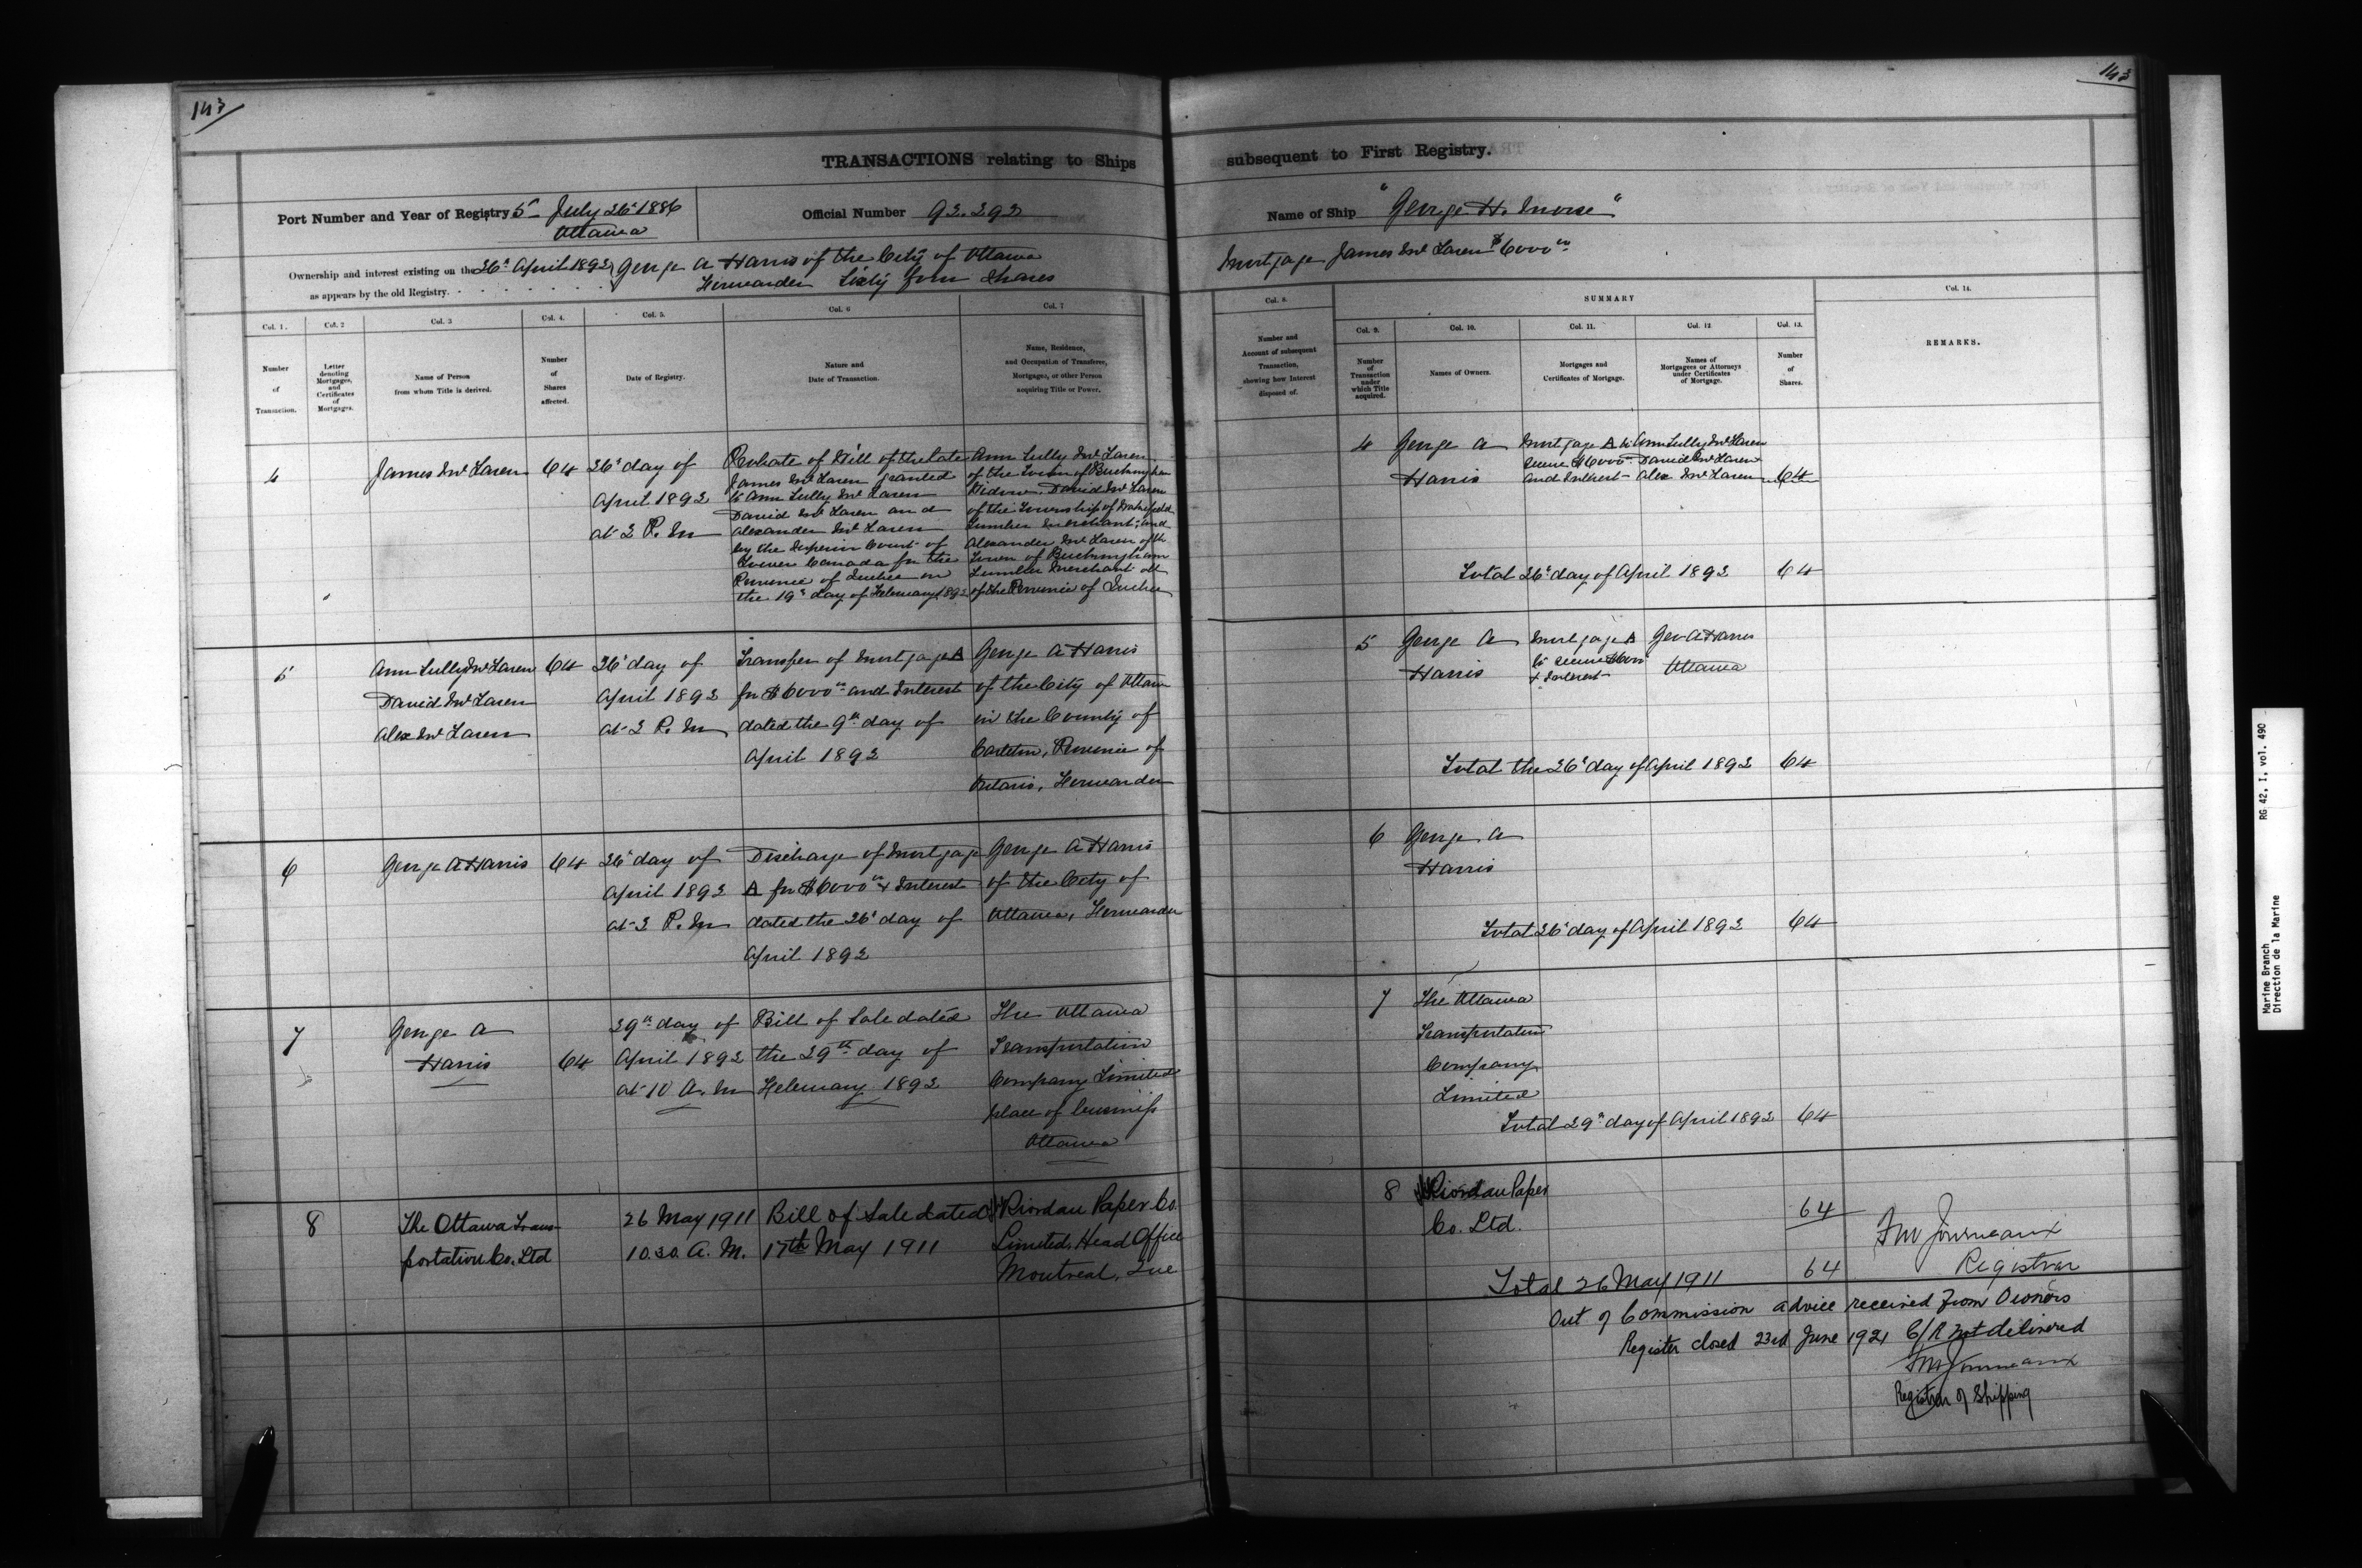 143
TRANSACTIONS relating to Ships
Port Number and Year of Registry 5 - July 26th 1886
Ottawa
Official Number 92.292
Ownership and interest existing on the 26th April 1892 George A Harris of the City of Ottawa
as appears by the old Registry. Forwarder Sixty four Shares
Col. 1. Col. 2 Col. 3 Col. 4. Col. 5. Col. 6 Col. 7
Number of Transaction.
Letter denoting Mortgages, and Certificates of Mortgages.
Name of Person from whom Title is derived.
Number of Shares affected.
Date of Registry.
Nature and Date of Transaction.
Name, Residence, and Occupation of Transferee, Mortgagee, or other Person acquiring Title or Power.
4
James McLaren
64
26th day of
April 1892
at 2 P. M
Probate of Will of the late
James McLaren granted
to Ann Sully McLaren
David McLaren and
Alexander McLaren
by the Superior Court of
Lower Canada for the
Province of Quebec on
the 19th day of February 1892
Ann Sully McLaren
of the Town of Buckingham
Widow, David McLaren
of the Township of Wakefield
Lumber Merchant, and
Alexander McLaren of the
Town of Buckingham
Lumber Merchant all
of the Province of Quebec
5
Ann Sully McLaren
David McLaren
Alex McLaren
64
26th day of
April 1892
at 2 P. M
Transfer of Mortgage A
for $6000.00 and Interest
dated the 9th day of
April 1892
George A Harris
of the City of Ottawa
in the County of
Carleton, Province of
Ontario, Forwarder
6
George A Harris
64
26th day of
April 1892
at 2 P. M
Discharge of Mortgage
A for $6000.00 & Interest
dated the 26th day of
April 1892
George A Harris
of the City of
Ottawa, Forwarder
7
George A
Harris
64
29th day of
April 1892
at 10 A. M
Bill of Sale dated
the 29th day of
February 1892
The Ottawa
Transportation
Company Limited
place of business
Ottawa
8
The Ottawa Trans-
portation Co. Ltd
26 May 1911
10.30 A. M.
Bill of Sale dated
17th May 1911
Riordan Paper Co.
Limited, Head Office
Montreal, Que
143
subsequent to First Registry.
Name of Ship "George H. Morse"
Mortgage James McLaren $6000.00
Col. 8. SUMMARY Col. 14.
Col. 9. Col. 10. Col. 11. Col. 12 Col. 13.
Number and Account of subsequent Transaction, showing how Interest disposed of.
Number of Transaction under which Title acquired.
Names of Owners.
Mortgages and Certificates of Mortgage.
Names of Mortgagees or Attorneys under Certificates of Mortgage.
Number of Shares.
REMARKS.
4
George A
Harris
Mortgage A to
secure $6000.00
and Interest
Ann Sully McLaren
David McLaren
Alex McLaren
64
Total 26th day of April 1892 64
5
George A
Harris
Mortgage A
to secure $6000
& Interest
Geo A Harris
Ottawa
Total the 26th day of April 1892 64
6
George A
Harris
Total 26th day of April 1892 64
7
The Ottawa
Transportation
Company
Limited
Total 29th day of April 1892 64
8
Riordan Paper
Co. Ltd.
64
Total 26 May 1911 64
FM Journeaux
Registrar
Out of Commission advice received from Owners
Register closed 23rd June 1921 C/R not delivered
FM Journeaux
Registrar of Shipping
Marine Branch RG 42, I, vol. 490
Direction de la Marine